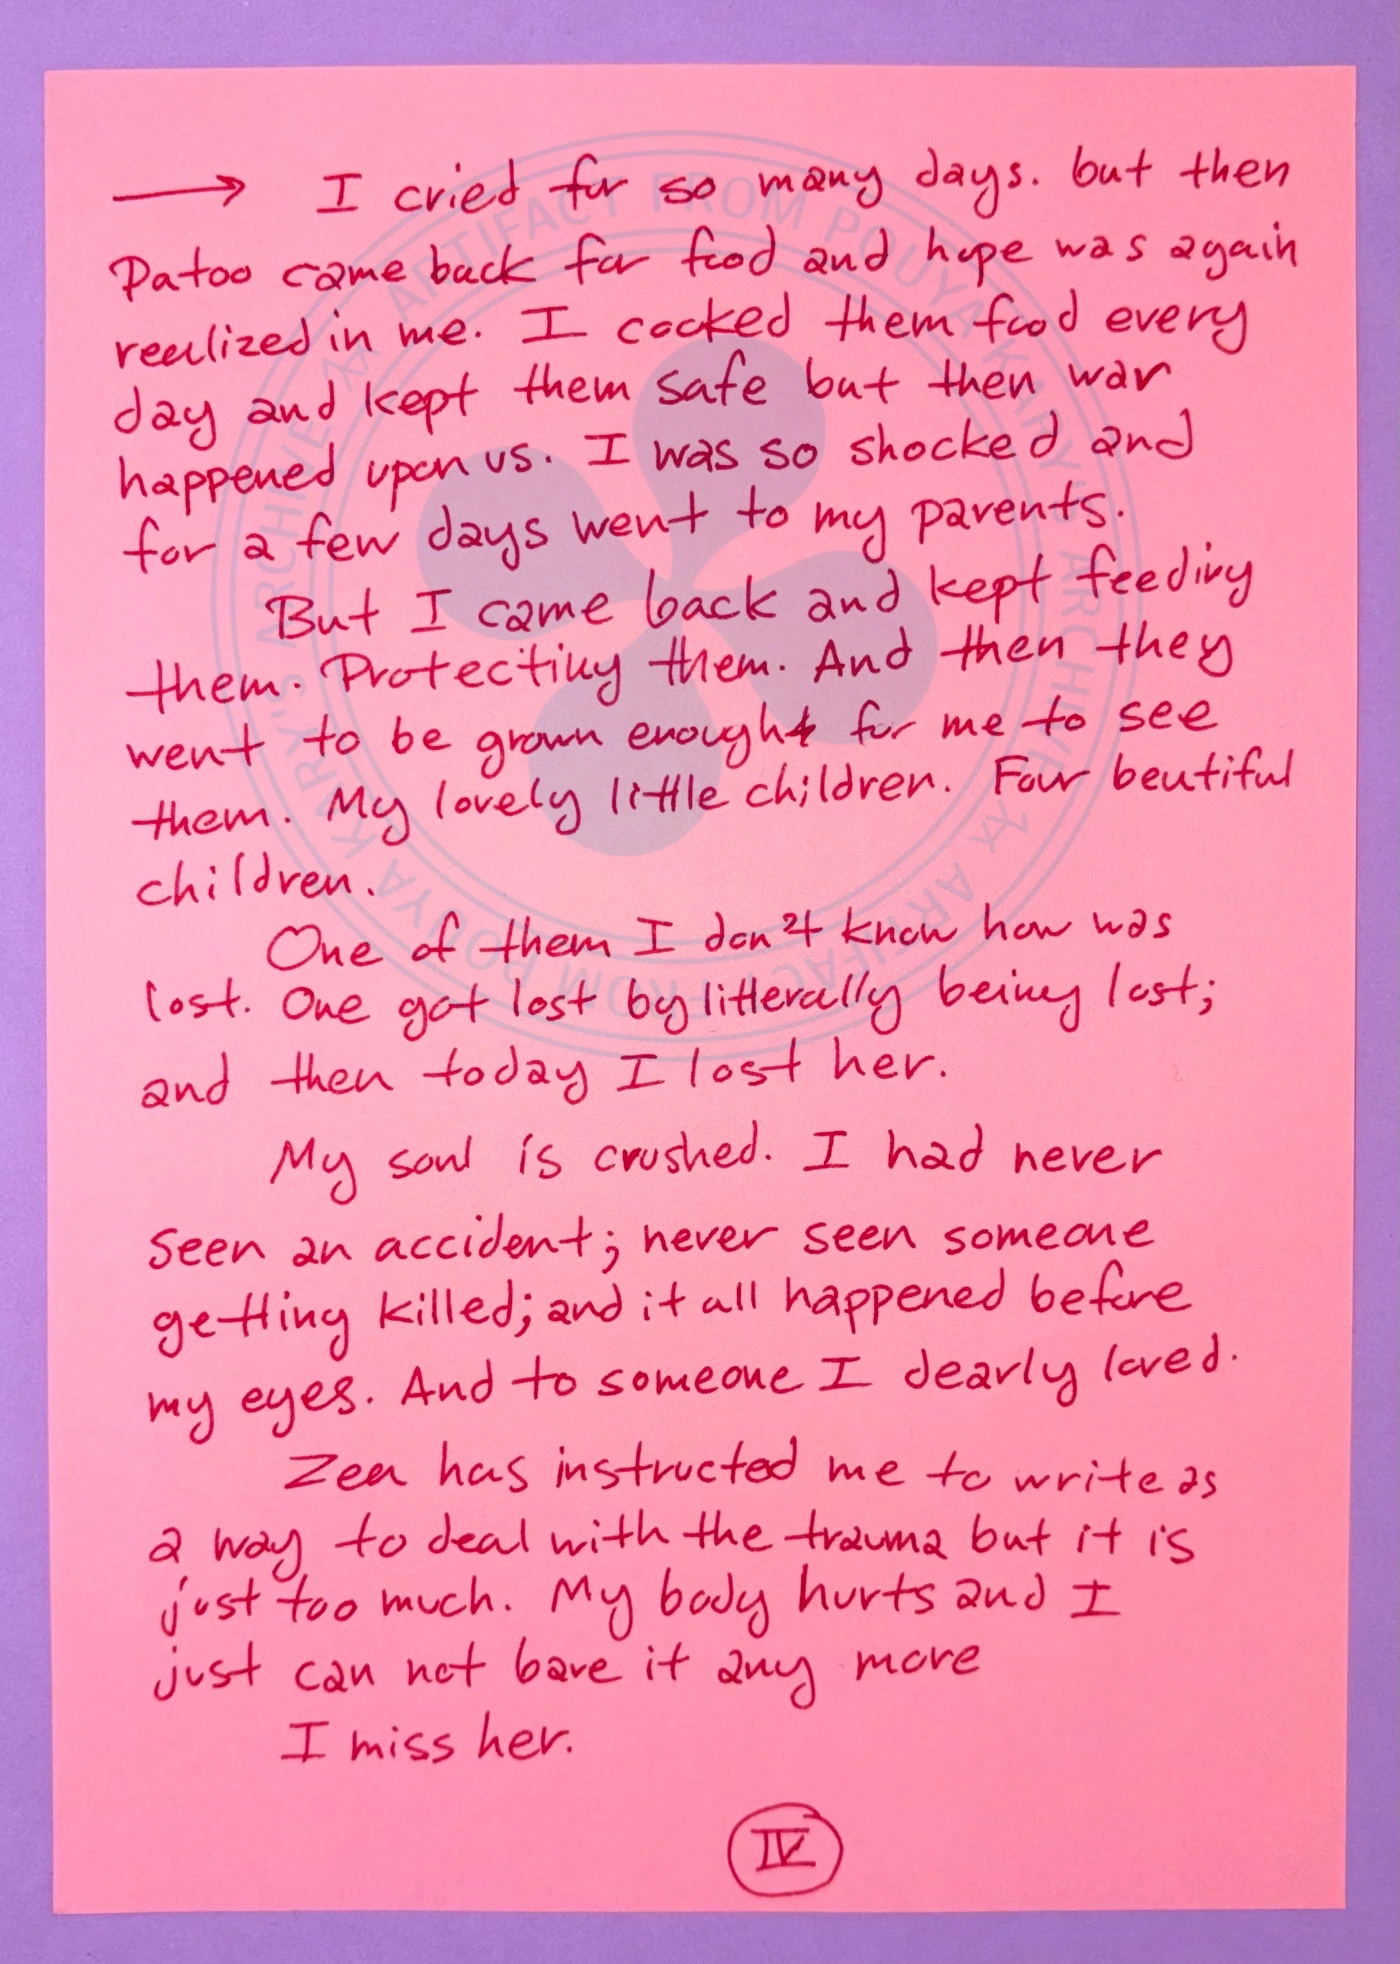 → I cried for so many days. but then
Patoo came back for food and hope was again
realized in me. I cocked them food every
day and kept them safe but then war
happened upon us. I was so shocked and
for a few days went to my parents.
But I came back and kept feeding
them. Protecting them. And then they
went to be grown enough for me to see
them. My lovely little children. Four beutiful
children.
One of them I don't know how was
lost. One got lost by litterally being lost;
and then today I lost her.
My soul is crushed. I had never
seen an accident; never seen someone
getting killed; and it all happened before
my eyes. And to someone I dearly loved.
Zea has instructed me to write as
a way to deal with the trauma but it is
just too much. My body hurts and I
just can not bare it any more
I miss her.
IV
ARTIFACT FROM POUYA KARY'S ARCHIVE
ARTIFACT FROM POUYA KARY'S ARCHIVE